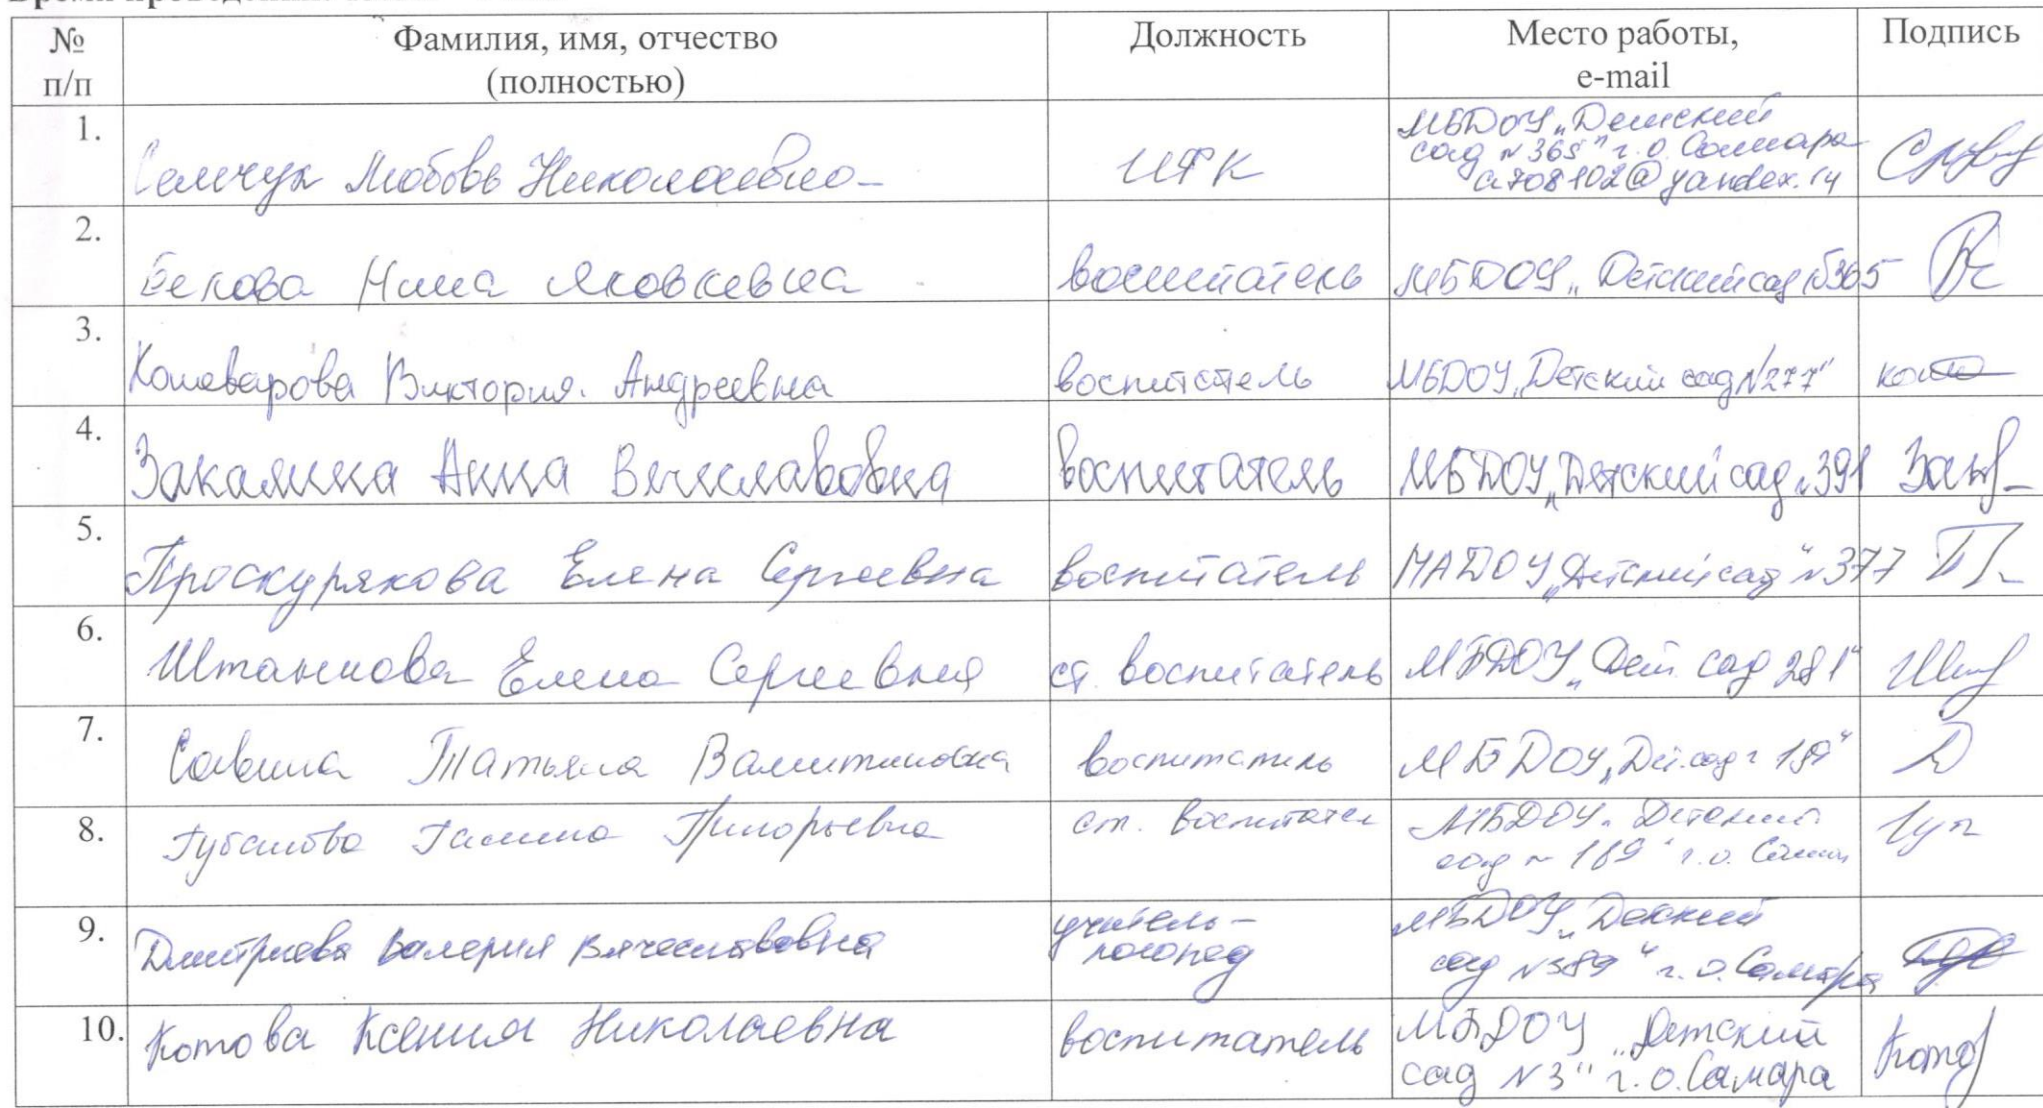 № Фамилия, имя, отчество Должность Место работы, Подпись
п/п (полностью) e-mail
1. Семчук Любовь Николаевна ИФК МБДОУ „Детский
сад №365" г.о. Самара
a708102@yandex.ru
2. Бекова Нина Яковлевна воспитатель МБДОУ „Детский сад №365
3. Кошеварова Виктория Андреевна воспитатель МБДОУ „Детский сад №277"
4. Закалина Анна Вячеславовна воспитатель МБДОУ „Детский сад №391
5. Проскурякова Елена Сергеевна воспитатель МАДОУ „Детский сад" №377
6. Штанькова Елена Сергеевна ст. воспитатель МБДОУ „Дет. сад 281"
7. Савина Татьяна Валентиновна воспитатель МБДОУ „Дет. сад № 189"
8. Губанова Галина Григорьевна ст. воспитател МБДОУ „Детский
сад № 189" г.о. Самара
9. Дмитриева Валерия Вячеславовна учитель-
логопед МБДОУ „Детский
сад №389" г.о. Самара
10. Котова Ксения Николаевна воспитатель МБДОУ „Детский
сад №3" г.о. Самара